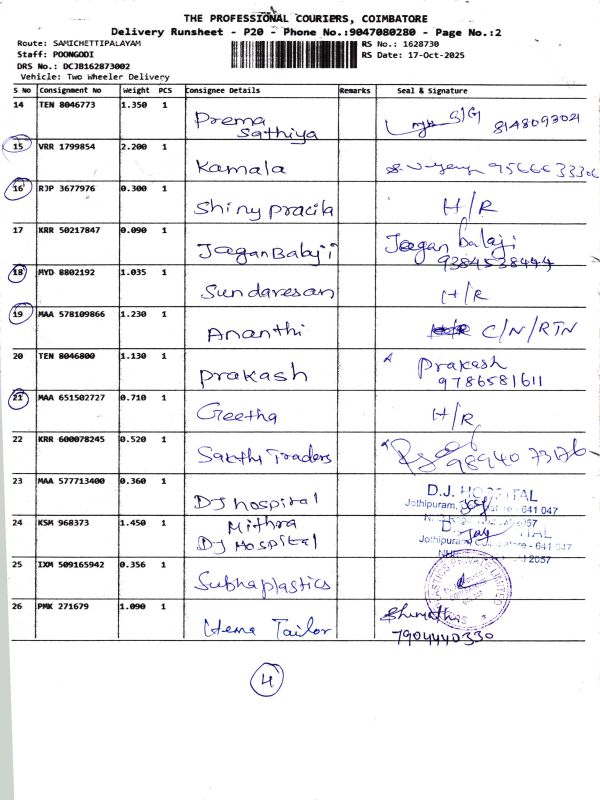 THE PROFESSIONAL COURIERS, COIMBATORE
Delivery Runsheet - P20 - Phone No.:9047080280 - Page No.:2
Route: SAMICHETTIPALAYAM RS No.: 1628730
Staff: POONGODI RS Date: 17-Oct-2025
DRS No.: DCJB162873002
Vehicle: Two Wheeler Delivery
S No Consignment No Weight PCS Consignee Details Remarks Seal & Signature
14 TEN 8046773 1.350 1 Prema Sathiya SIG 8148093021
15 VRR 1799854 2.200 1 Kamala
16 RJP 3677976 0.300 1 Shiny pracila H/R
17 KRR 50217847 0.090 1 Jagan Babaji Jagan balaji
9384538444
18 MYD 8802192 1.035 1 Sundaresan H/R
19 MAA 578109866 1.230 1 Ananthi C/N/RTN
20 TEN 8046800 1.130 1 prakash Prakash
9786581611
21 MAA 651502727 0.710 1 Geetha H/R
22 KRR 600078245 0.520 1 Sakthi Traders
23 MAA 577713400 0.360 1 DJ hospital D.J. HOSPITAL
Jothipuram, 641 047
24 KSM 968373 1.450 1 Mithra
DJ Hospital
Jothipuram, 641 047
25 IXM 509165942 0.356 1 Subhaplastics
26 PMK 271679 1.090 1 Hema Tailor
7904440330
4